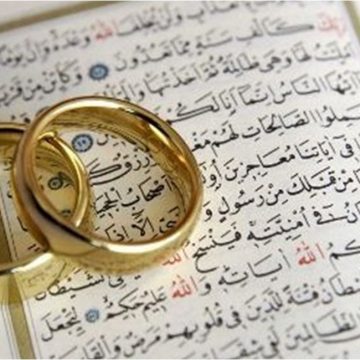 العذاب ولن يخلف الله وعده وإن يوما
ربك كألف سنة مما تعدون وكأين من قرية
لها وهي ظالمة ثم أخذتها وإلي
أيها الناس إنما أنا لكم
عملوا الصالحات لهم مغفرة
في آياتنا معاجزين
أصحاب الجحيم
من قبلك من رسول ولا نبي إلا
في أمنيته فينسخ الله الشيطان
الله آياته والله عليم حكيم ليجعل
الشيطان فتنة للذين في قلوبهم مرض والقا